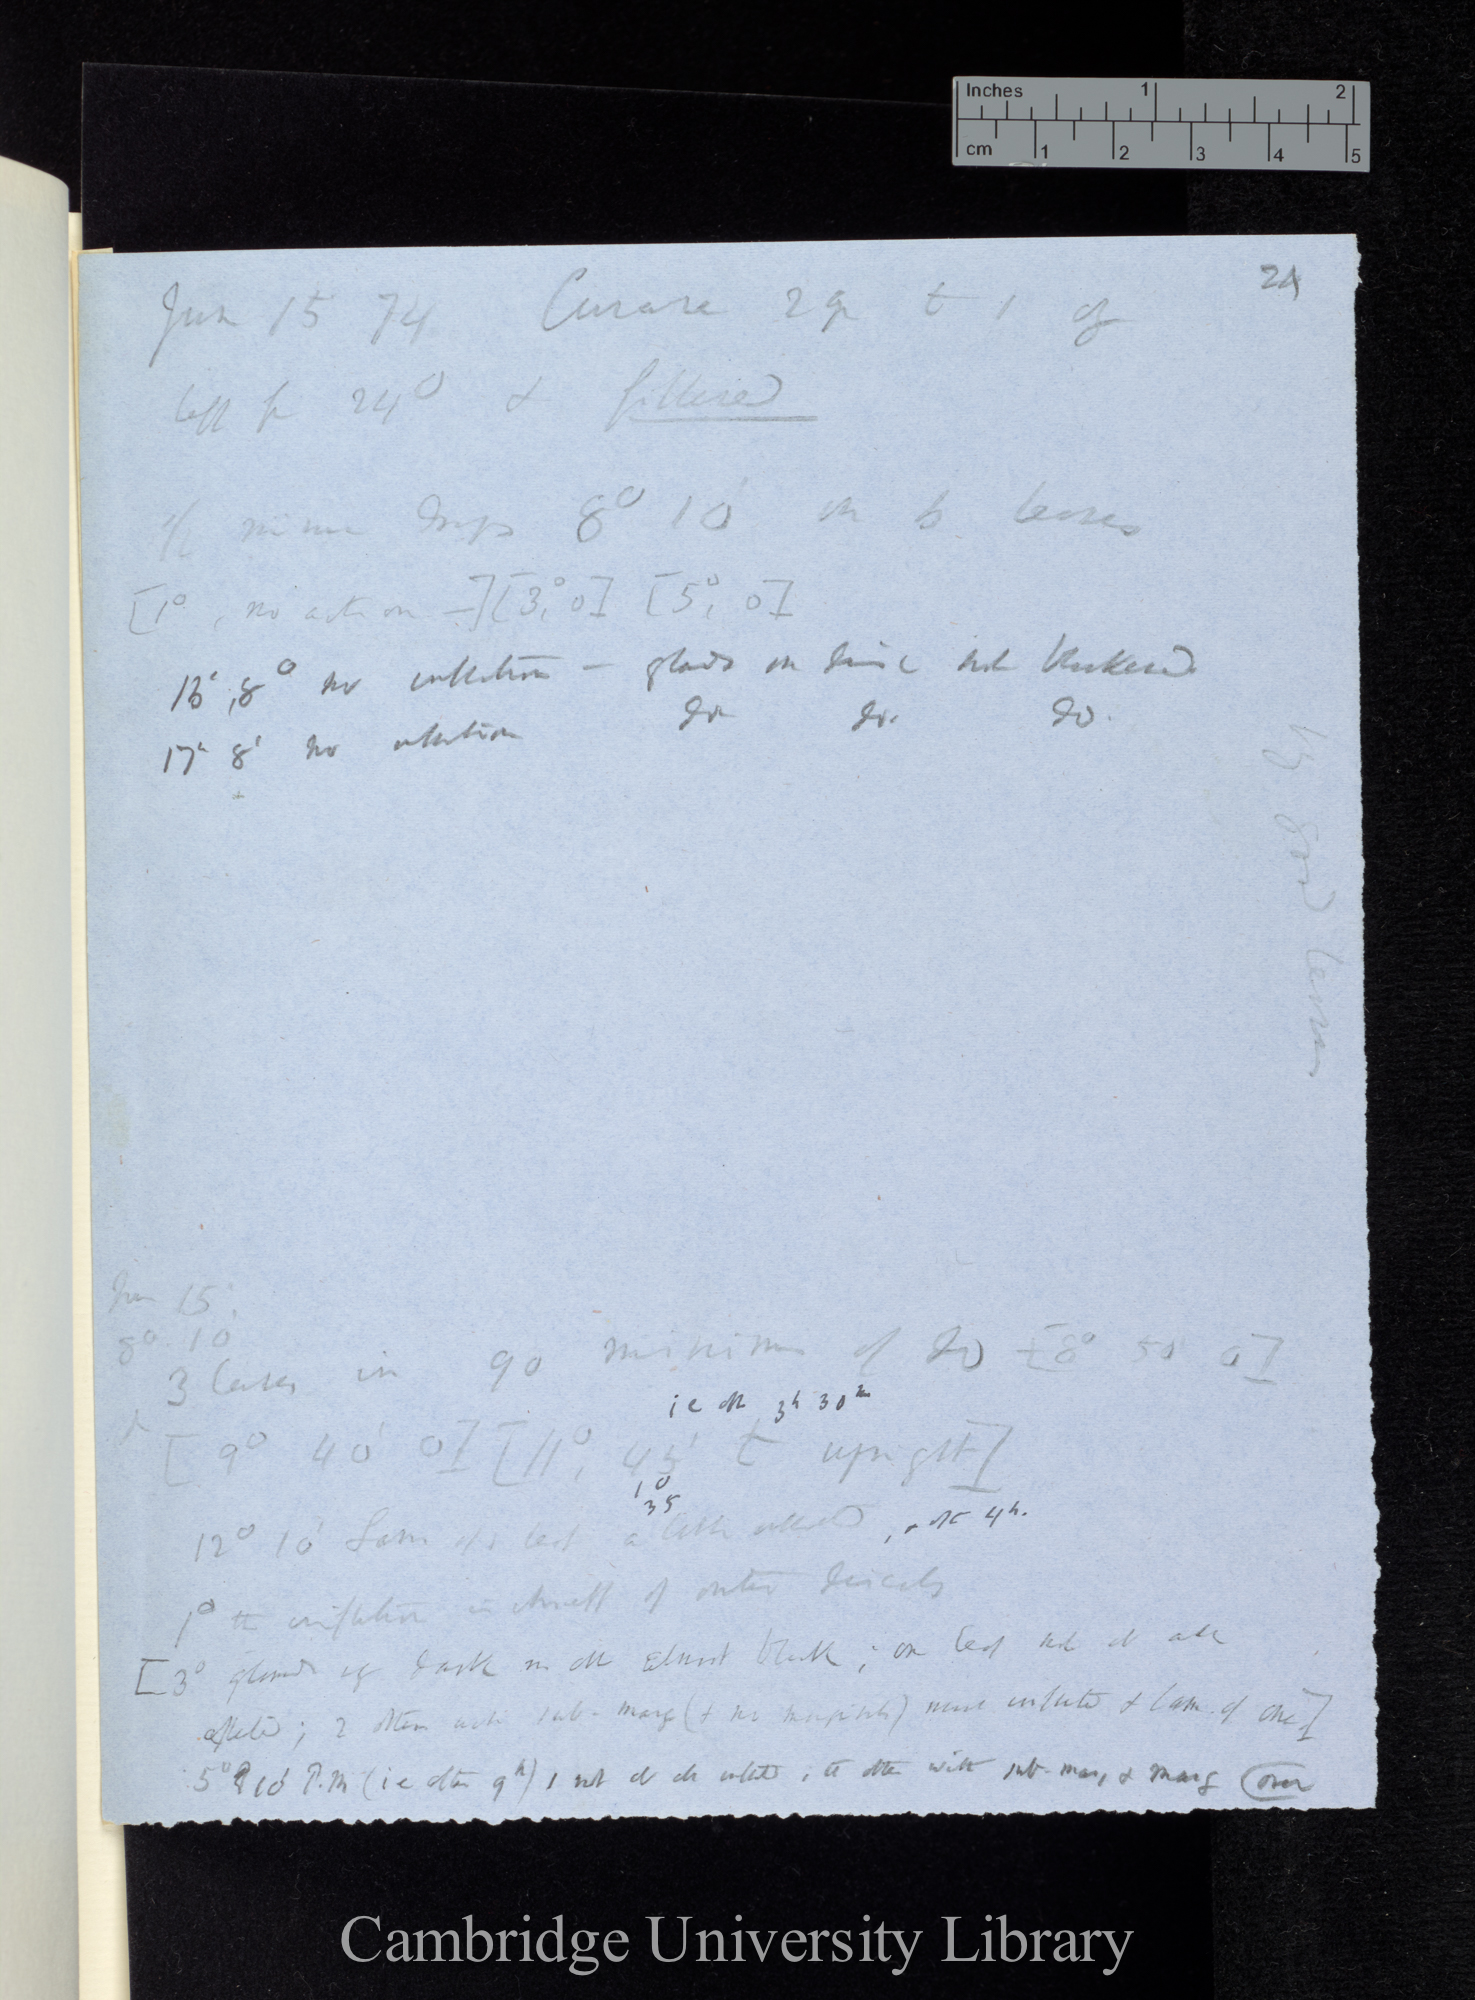 Inches 1 2
cm 1 2 3 4 5
24
June 15 74 Curare 2 gr to 1 oz
left for 24° & filtered
½ minim drops 8° 10' on 6 leaves
[1°, no action —] [3°, 0] [5°, 0]
16', 8° no inflection — glands on disc not blackened
17' 8' no inflection do do. do.
by good lens
June 15'
8° 10'
3 leaves in 90 minims of do — [8° 50' 0]
i e after 3h 30m
[9° 40' 0] [11°, 45' t upright]
10
35
12° 10' Lam of 1 leaf a little inflected, after 4h.
1° the inflection of outer
[3° glands dark on other almost black; one leaf not at all
affected; 2 others with sub-marg (& no marginals) much inflected & Lam. of one]
5° 10' P.M (i e after 9h) 1 not at all inflected; the other with sub-marg & marg (over